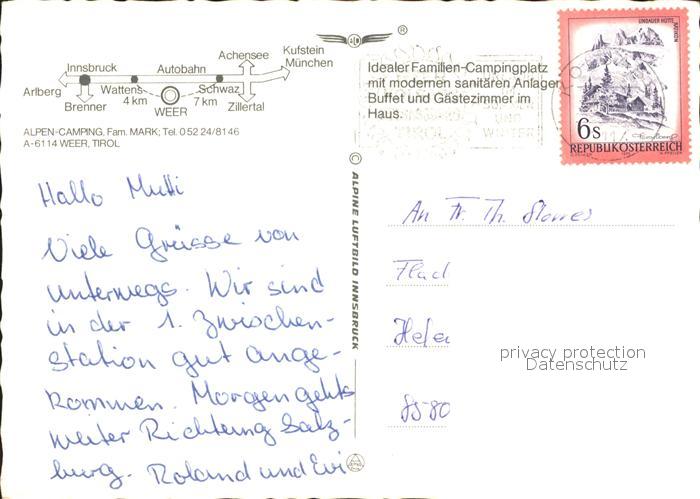 Achensee
Kufstein
München
Innsbruck
Autobahn
Arlberg
Wattens
4 km
Schwaz
7 km
Brenner
WEER
Zillertal
ALPEN-CAMPING, Fam. MARK; Tel. 0 52 24/81 46
A-6114 WEER, TIROL
®
Idealer Familien-Campingplatz
mit modernen sanitären Anlagen
Buffet und Gästezimmer im
Haus.
TIROL
UND
WINTER
LINDAUER HÜTTE
RÄTIKON
6 S
REPUBLIK ÖSTERREICH
© ALPINE LUFTBILD INNSBRUCK
Hallo Mutti
Viele Grüsse von
unterwegs. Wir sind
in der 1. Zwischen-
station gut ange-
kommen. Morgen gehts
weiter Richtung Salz-
burg. Roland und Evi
An Fr. Th.
8580
privacy protection
Datenschutz